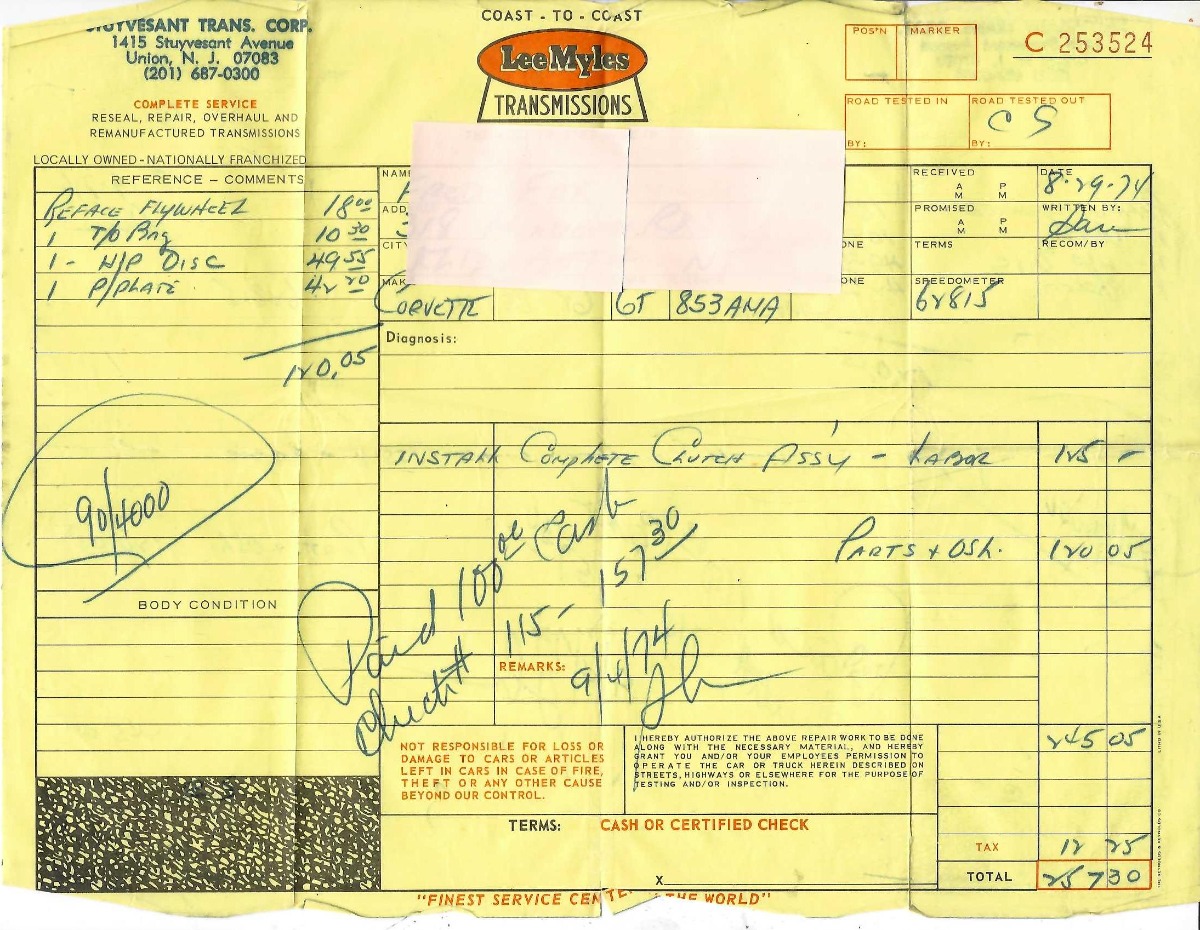 STUYVESANT TRANS. CORP.
1415 Stuyvesant Avenue
Union, N. J. 07083
(201) 687-0300
COMPLETE SERVICE
RESEAL, REPAIR, OVERHAUL AND
REMANUFACTURED TRANSMISSIONS
LOCALLY OWNED - NATIONALLY FRANCHIZED
COAST - TO - COAST
Lee Myles
TRANSMISSIONS
POS'N MARKER
C 253524
ROAD TESTED IN ROAD TESTED OUT
CS
BY: BY:
REFERENCE - COMMENTS
REFACE FLYWHEEL 18 00
1 T/O Brg 10 30
1 - N/P DISC 49 55
1 P/PLATE 42 20
120,05
90/4000
BODY CONDITION
NAME
ADD
CITY
MAK
RECEIVED
A M P M
DATE
8-29-74
PROMISED
A M P M
WRITTEN BY:
Dave
ONE TERMS RECOM/BY
ONE SPEEDOMETER
CORVETTE 65 853AMA 62815
Diagnosis:
INSTALL COMPLETE CLUTCH ASS'Y - LABOR 125 -
PARTS + DSH. 120 05
Paid 100 00 Cash
Check # 115 - 157 30
REMARKS:
9/4/74
NOT RESPONSIBLE FOR LOSS OR
DAMAGE TO CARS OR ARTICLES
LEFT IN CARS IN CASE OF FIRE,
THEFT OR ANY OTHER CAUSE
BEYOND OUR CONTROL.
I HEREBY AUTHORIZE THE ABOVE REPAIR WORK TO BE DONE
ALONG WITH THE NECESSARY MATERIAL, AND HEREBY
GRANT YOU AND/OR YOUR EMPLOYEES PERMISSION TO
OPERATE THE CAR OR TRUCK HEREIN DESCRIBED ON
STREETS, HIGHWAYS OR ELSEWHERE FOR THE PURPOSE OF
TESTING AND/OR INSPECTION.
245 05
TERMS: CASH OR CERTIFIED CHECK
TAX 12 25
X
TOTAL 257 30
"FINEST SERVICE CENTE THE WORLD"